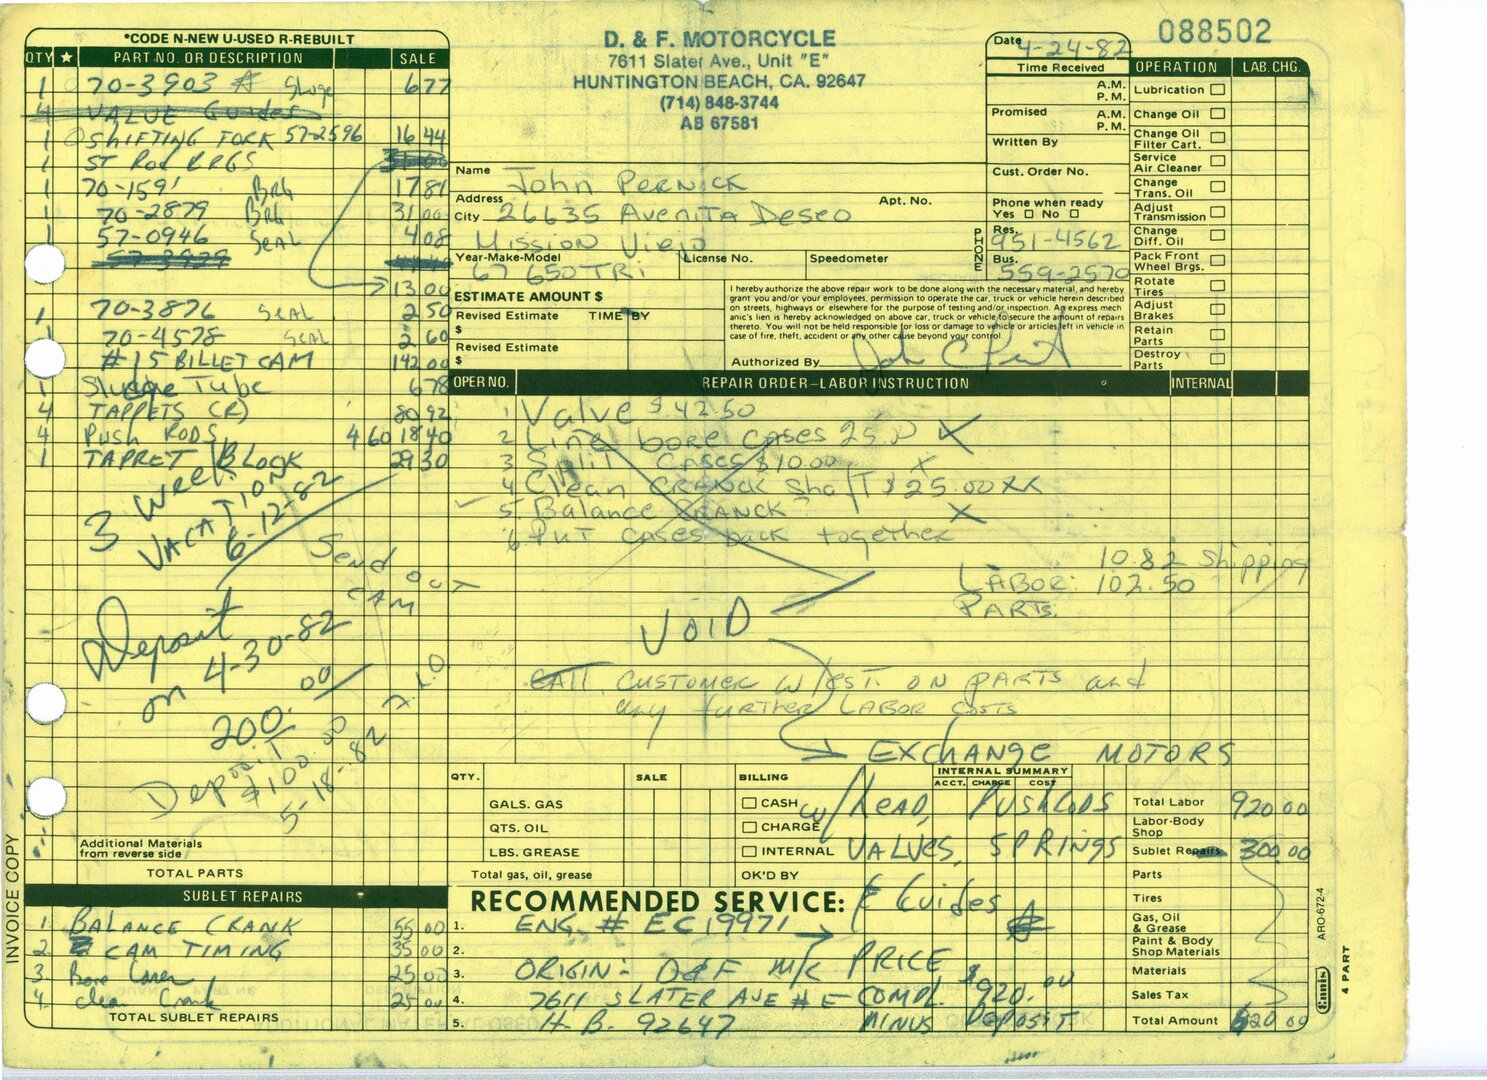 *CODE N-NEW U-USED R-REBUILT
QTY ★ PART NO. OR DESCRIPTION SALE
1 70-3903 Sludge 6 77
4 VALUE Guides
1 SHIFTING FORK 57-2596 16 44
1 ST Rod BRGS
1 70-159 BRG 17 81
1 70-2879 BRG 31 00
1 57-0946 SEAL 4 08
57-3929
13 00
1 70-3876 SEAL 2 50
70-4578 SEAL 2 60
#15 BILLET CAM 142 00
1 Sludge Tube 6 78
4 TAPPETS (R) 80 92
4 PUSH RODS 4 60 18 40
1 TAPRET BLOCK 29 30
3 Week
VACATION
6-12-82
Send out
CAM
Deposit
on 4-30-82
200.00
Deposit
$100.00
5-18-82
Additional Materials
from reverse side
TOTAL PARTS
SUBLET REPAIRS
1. BALANCE CRANK 55 00
2 CAM TIMING 35 00
3 Bore Cases 25 00
4. clean Crank 25 00
TOTAL SUBLET REPAIRS
INVOICE COPY
D. & F. MOTORCYCLE
7611 Slater Ave., Unit "E"
HUNTINGTON BEACH, CA. 92647
(714) 848-3744
AB 67581
Name John PERNICK
Address Apt. No.
City 26635 Avenita Deseo
Mission Viejo
Year-Make-Model License No. Speedometer
67 650 TRI
ESTIMATE AMOUNT $
Revised Estimate TIME BY
$
Revised Estimate
$
I hereby authorize the above repair work to be done along with the necessary material, and hereby
grant you and/or your employees, permission to operate the car, truck or vehicle herein described
on streets, highways or elsewhere for the purpose of testing and/or inspection. An express mech
anic's lien is hereby acknowledged on above car, truck or vehicle to secure the amount of repairs
thereto. You will not be held responsible for loss or damage to vehicle or articles left in vehicle in
case of fire, theft, accident or any other cause beyond your control.
Authorized By
088502
Date 4-24-82
Time Received
A.M.
P.M.
Promised A.M.
P.M.
Written By
Cust. Order No.
Phone when ready
Yes No
PHONE
Res. 951-4562
Bus. 559-2570
OPERATION LAB. CHG.
Lubrication
Change Oil
Change Oil
Filter Cart.
Service
Air Cleaner
Change
Trans. Oil
Adjust
Transmission
Change
Diff. Oil
Pack Front
Wheel Brgs.
Rotate
Tires
Adjust
Brakes
Retain
Parts
Destroy
Parts
OPER NO. REPAIR ORDER–LABOR INSTRUCTION INTERNAL
1 Valve $42.50
2 Line bore cases 25.00 X
3 Split Cases $10.00 X
4 Clean CRANCK Shaft $25.00 XX
5 Balance CRANCK X
6 PUT cases back together
10.82 Shipping
LABOR: 102.50
PARTS:
VOID
CALL CUSTOMER W/EST. ON PARTS and
any further LABOR COSTS
EXCHANGE MOTORS
w/HEAD, PUSHRODS
VALVES, SPRINGS
& Guides
QTY. SALE BILLING
GALS. GAS
QTS. OIL
LBS. GREASE
Total gas, oil, grease
CASH
CHARGE
INTERNAL
OK'D BY
INTERNAL SUMMARY
ACCT. CHARGE COST
Total Labor 920 00
Labor-Body
Shop
Sublet Repairs 300 00
Parts
Tires
Gas, Oil
& Grease
Paint & Body
Shop Materials
Materials
Sales Tax
Total Amount 620 00
RECOMMENDED SERVICE:
1. ENG. # EC 19971
2.
3. ORIGIN: D&F M/C PRICE
4. 7611 SLATER AVE # E COMPL. $920.00
5. H. B. 92647 MINUS DEPOSIT
ARO-672-4
Ennis
4 PART